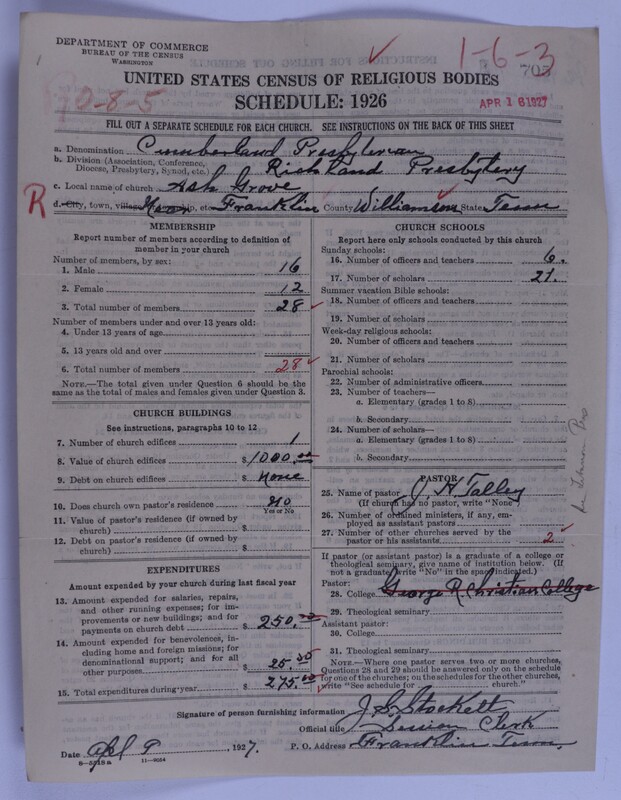 DEPARTMENT OF COMMERCE
BUREAU OF THE CENSUS
WASHINGTON
1-6-3
705
UNITED STATES CENSUS OF RELIGIOUS BODIES
SCHEDULE: 1926
APR 18 1927
0-8-5
FILL OUT A SEPARATE SCHEDULE FOR EACH CHURCH. SEE INSTRUCTIONS ON THE BACK OF THIS SHEET
a. Denomination Cumberland Presbyterian
b. Division (Association, Conference, Diocese, Presbytery, Synod, etc.) Richland Presbytery
c. Local name of church Ash Grove
R
d. City, town, village, etc. Franklin County Williamson State Tenn
MEMBERSHIP
Report number of members according to definition of
member in your church
Number of members, by sex:
1. Male 16
2. Female 12
3. Total number of members 28
Number of members under and over 13 years old:
4. Under 13 years of age
5. 13 years old and over
6. Total number of members 28
NOTE.—The total given under Question 6 should be
the same as the total of males and females given under Question 3.
CHURCH BUILDINGS
See instructions, paragraphs 10 to 12
7. Number of church edifices 1
8. Value of church edifices $1000.00
9. Debt on church edifices $ none
10. Does church own pastor's residence no
Yes or No
11. Value of pastor's residence (if owned by
church) $
12. Debt on pastor's residence (if owned by
church) $
EXPENDITURES
Amount expended by your church during last fiscal year
13. Amount expended for salaries, repairs,
and other running expenses; for im-
provements or new buildings; and for
payments on church debt $ 250.00
14. Amount expended for benevolences, in-
cluding home and foreign missions; for
denominational support; and for all
other purposes $ 25.00
15. Total expenditures during year $ 275.00
CHURCH SCHOOLS
Report here only schools conducted by this church
Sunday schools:
16. Number of officers and teachers 6.
17. Number of scholars 21.
Summer vacation Bible schools:
18. Number of officers and teachers
19. Number of scholars
Week-day religious schools:
20. Number of officers and teachers
21. Number of scholars
Parochial schools:
22. Number of administrative officers
23. Number of teachers—
a. Elementary (grades 1 to 8)
b. Secondary
24. Number of scholars—
a. Elementary (grades 1 to 8)
b. Secondary
PASTOR
25. Name of pastor J. H. Talley
(If church has no pastor, write "None")
26. Number of ordained ministers, if any, em-
ployed as assistant pastors
27. Number of other churches served by the
pastor or his assistants 2
If pastor (or assistant pastor) is a graduate of a college or
theological seminary, give name of institution below. (If
not a graduate write "No" in the space indicated.)
Pastor:
28. College George R. Christian College
29. Theological seminary
Assistant pastor:
30. College
31. Theological seminary
NOTE.—Where one pastor serves two or more churches,
Questions 28 and 29 should be answered only on the schedule
for one of the churches; on the schedules for the other churches,
write "See schedule for church."
Signature of person furnishing information J. S. Stockett
Official title Session Clerk
Date 1927. P. O. Address Franklin Tenn.
8-5918a 11-9054